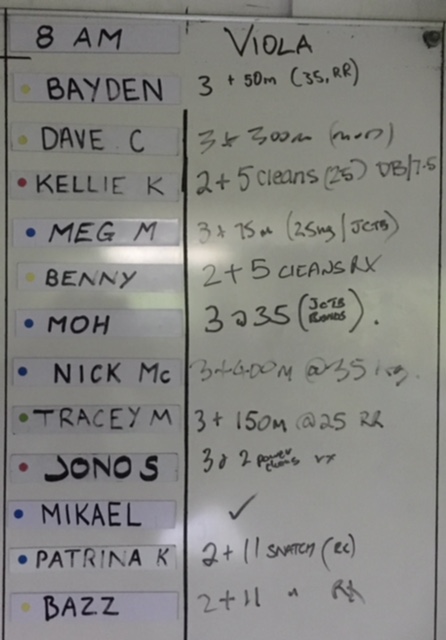 8 AM VIOLA
BAYDEN 3 + 50m (35, RR)
DAVE C 3 + 300m
KELLIE K 2 + 5 cleans (25) DB/7.5
MEG M 3 + 75m (25kg/JCTB)
BENNY 2 + 5 CLEANS RX
MOH 3 @ 35 (JCTB BANDS).
NICK Mc 3 + 400M @ 35 kg.
TRACEY M 3 + 150M @ 25 RR
JONO S 3 + 2 power cleans rx
MIKAEL ✓
PATRINA K 2 + 11 SNATCH (RC)
BAZZ 2 + 11 " RX